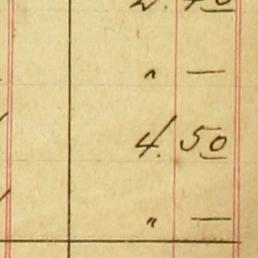 " —
4.50
" —